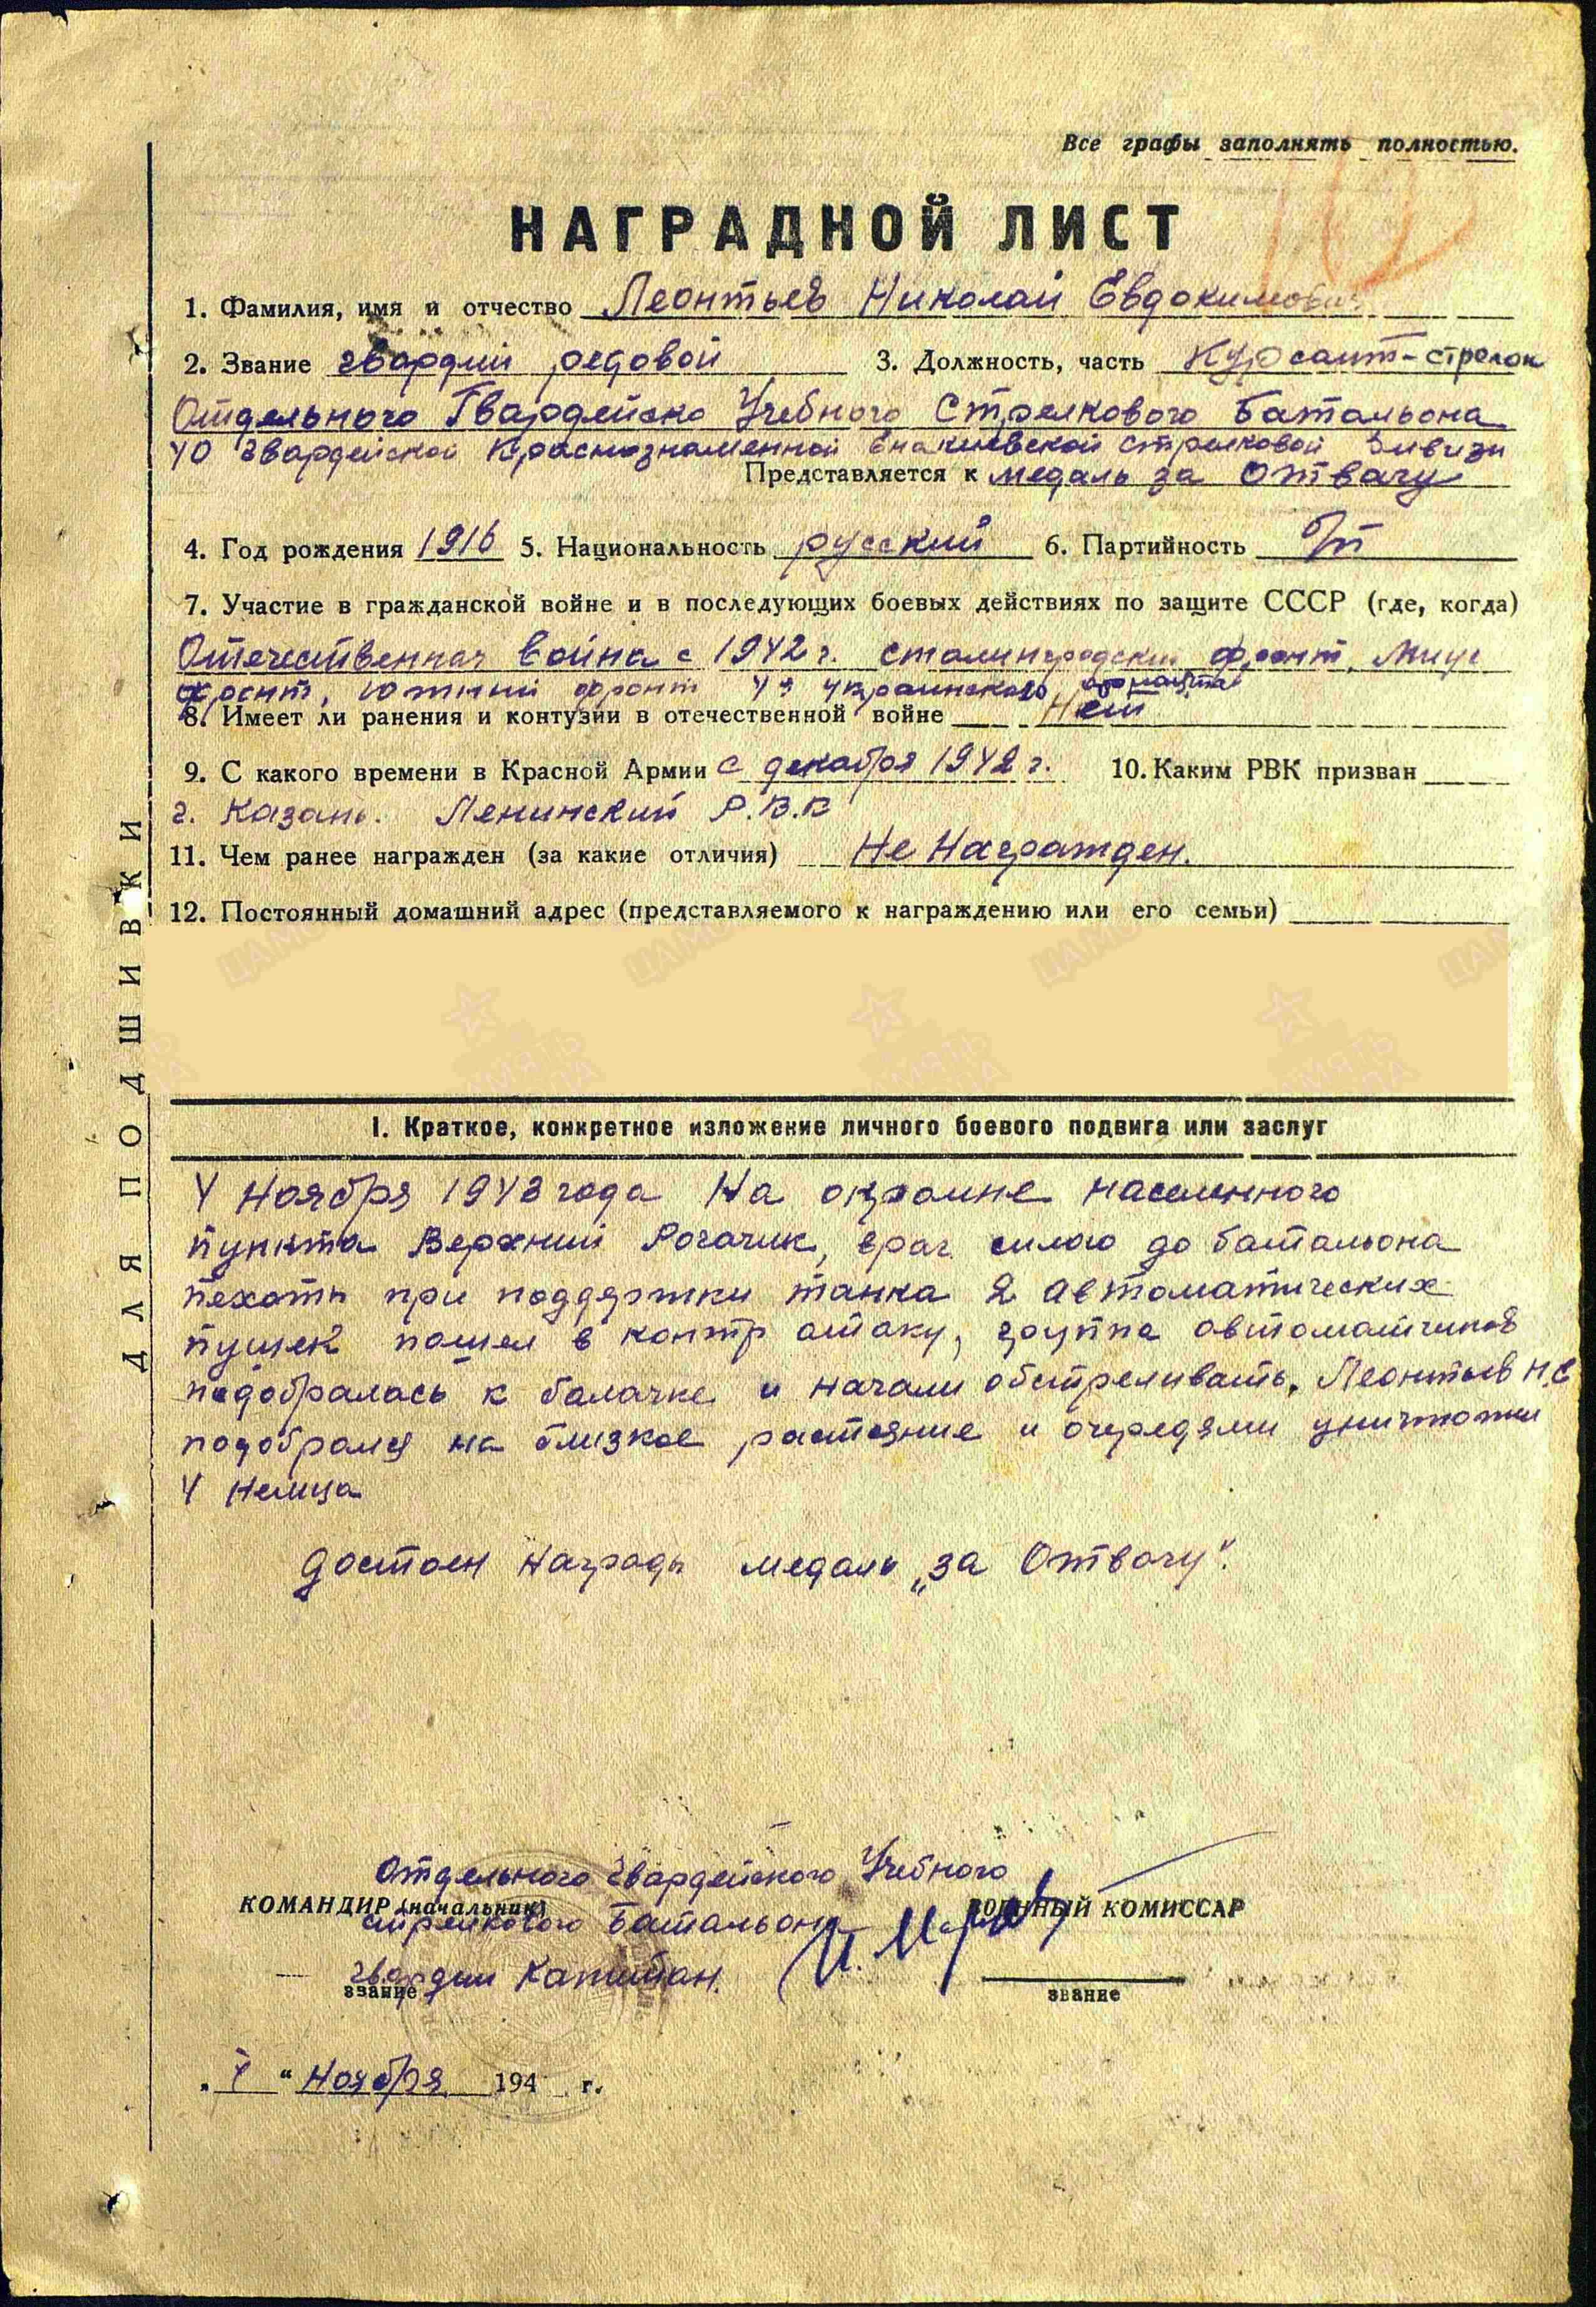 Все графы заполнять полностью.
НАГРАДНОЙ ЛИСТ
1. Фамилия, имя и отчество Леонтьев Николай Евдокимович
2. Звание гвардии редовой 3. Должность, часть Курсант-стрелок
Отдельного Гвардейско Учебного Стрелкового Батальона
40 Гвардейской Краснознаменной Енакиевской стрелковой Дивизи
Представляется к медаль за Отвагу
4. Год рождения 1916 5. Национальность русский 6. Партийность б/п
7. Участие в гражданской войне и в последующих боевых действиях по защите СССР (где, когда)
Отечественная война с 1942 г. сталинградский фронт,
фронт, южный фронт 4й украинского фронта
8. Имеет ли ранения и контузии в отечественной войне Нет
9. С какого времени в Красной Армии с декабря 1942 г. 10. Каким РВК призван
г. Казань. Ленинский Р.В.К
11. Чем ранее награжден (за какие отличия) Не Награжден.
12. Постоянный домашний адрес (представляемого к награждению или его семьи)
ДЛЯ ПОДШИВКИ
I. Краткое, конкретное изложение личного боевого подвига или заслуг
4 Ноября 1943 года На окраине населенного
пункта Верхний Рогачик, враг силою до батальона
пехоты при поддержки танка 2 автоматических
пушек пошел в контр атаку, группа автоматчиков
подобралась к балачке и начали обстреливать. Леонтьев Н.Е
подобрался на близкое растояние и очередями уничтожил
4 Немца
Достоен Награды медаль „за Отвагу".
Отдельного Гвардейского Учебного
КОМАНДИР (начальник) ВОЕННЫЙ КОМИССАР
стрелкового Батальона
гвардии Капитан.
звание звание
„ 7 " Ноября 194 г.